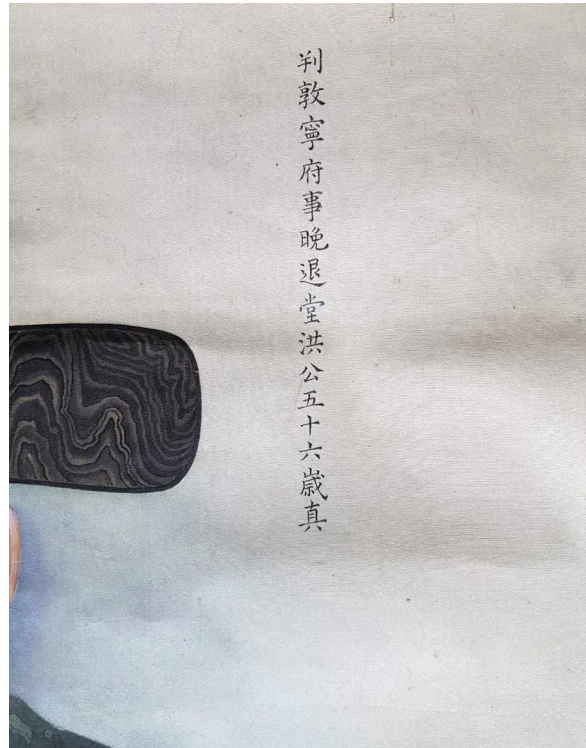 判敦寧府事晚退堂洪公五十六歲真